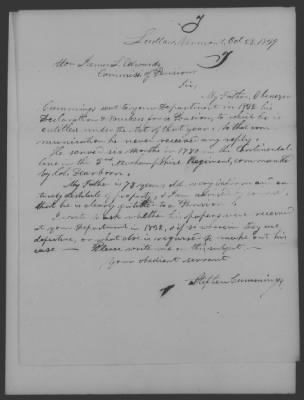 Ludlow, Vermont, Oct 23, 1849
Hon James L. Edwards
Commiss of Pensions
Sir,
My Father, Ebenezer
Cummings sent to your Department in 1832 his
Declaration & under Pension, to which he is
entitled under the Act of that year. To that com
munication he never received any reply.
He served six months in 1780 in the Continental
line in the 3rd New Hampshire Regiment, commanded
by Col. Dearborn.
My Father is years old, very infirm and
destitute of property, & I am
that he is clearly entitled to a Pension.
I wish to ask whether his papers were received
at your Department in 1832, & if so wherein they are
defective, or what else is required to make out his
case — Please write me on this subject. —
Your obedient servant
Stephen Cummings